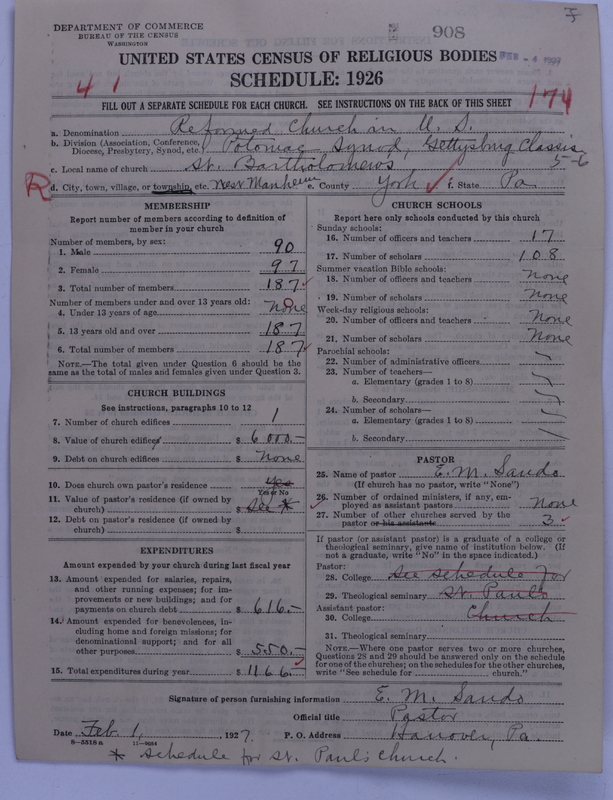 DEPARTMENT OF COMMERCE
BUREAU OF THE CENSUS
WASHINGTON
908
UNITED STATES CENSUS OF RELIGIOUS BODIES
SCHEDULE: 1926
41
174
FILL OUT A SEPARATE SCHEDULE FOR EACH CHURCH. SEE INSTRUCTIONS ON THE BACK OF THIS SHEET
a. Denomination Reformed Church in U. S.
b. Division (Association, Conference, Diocese, Presbytery, Synod, etc.) Potomac Synod, Gettysburg Classis
5-6
c. Local name of church St. Bartholomews
R d. City, town, village, or township, etc. West Manheim e. County York ✓ f. State Pa.
MEMBERSHIP
Report number of members according to definition of
member in your church
Number of members, by sex:
1. Male 90
2. Female 97
3. Total number of members 187 ✓
Number of members under and over 13 years old:
4. Under 13 years of age None
5. 13 years old and over 187
6. Total number of members 187 ✓
NOTE.—The total given under Question 6 should be the
same as the total of males and females given under Question 3.
CHURCH BUILDINGS
See instructions, paragraphs 10 to 12
7. Number of church edifices 1
8. Value of church edifices $ 6000.–
9. Debt on church edifices $ None
10. Does church own pastor's residence yes
Yes or No
11. Value of pastor's residence (if owned by
church) $ See *
12. Debt on pastor's residence (if owned by
church) $
EXPENDITURES
Amount expended by your church during last fiscal year
13. Amount expended for salaries, repairs,
and other running expenses; for im-
provements or new buildings; and for
payments on church debt $ 616.–
14. Amount expended for benevolences, in-
cluding home and foreign missions; for
denominational support; and for all
other purposes $ 550.–
15. Total expenditures during year $ 1166.– ✓
CHURCH SCHOOLS
Report here only schools conducted by this church
Sunday schools:
16. Number of officers and teachers 17
17. Number of scholars 108
Summer vacation Bible schools:
18. Number of officers and teachers None
19. Number of scholars None
Week-day religious schools:
20. Number of officers and teachers None
21. Number of scholars None
Parochial schools:
22. Number of administrative officers
23. Number of teachers—
a. Elementary (grades 1 to 8)
b. Secondary
24. Number of scholars—
a. Elementary (grades 1 to 8)
b. Secondary
PASTOR
25. Name of pastor E. M. Sando
(If church has no pastor, write "None")
26. Number of ordained ministers, if any, em-
ployed as assistant pastors None
27. Number of other churches served by the
pastor or his assistants 3 ✓
If pastor (or assistant pastor) is a graduate of a college or
theological seminary, give name of institution below. (If
not a graduate, write "No" in the space indicated.)
Pastor:
28. College See schedule for
29. Theological seminary St. Paul's
Assistant pastor:
30. College Church
31. Theological seminary
NOTE.—Where one pastor serves two or more churches,
Questions 28 and 29 should be answered only on the schedule
for one of the churches; on the schedules for the other churches,
write "See schedule for church."
Signature of person furnishing information E. M. Sando
Official title Pastor
Date Feb 1, 1927. P. O. Address Hanover, Pa.
8—5518a 11—9034
* schedule for St. Paul's Church.